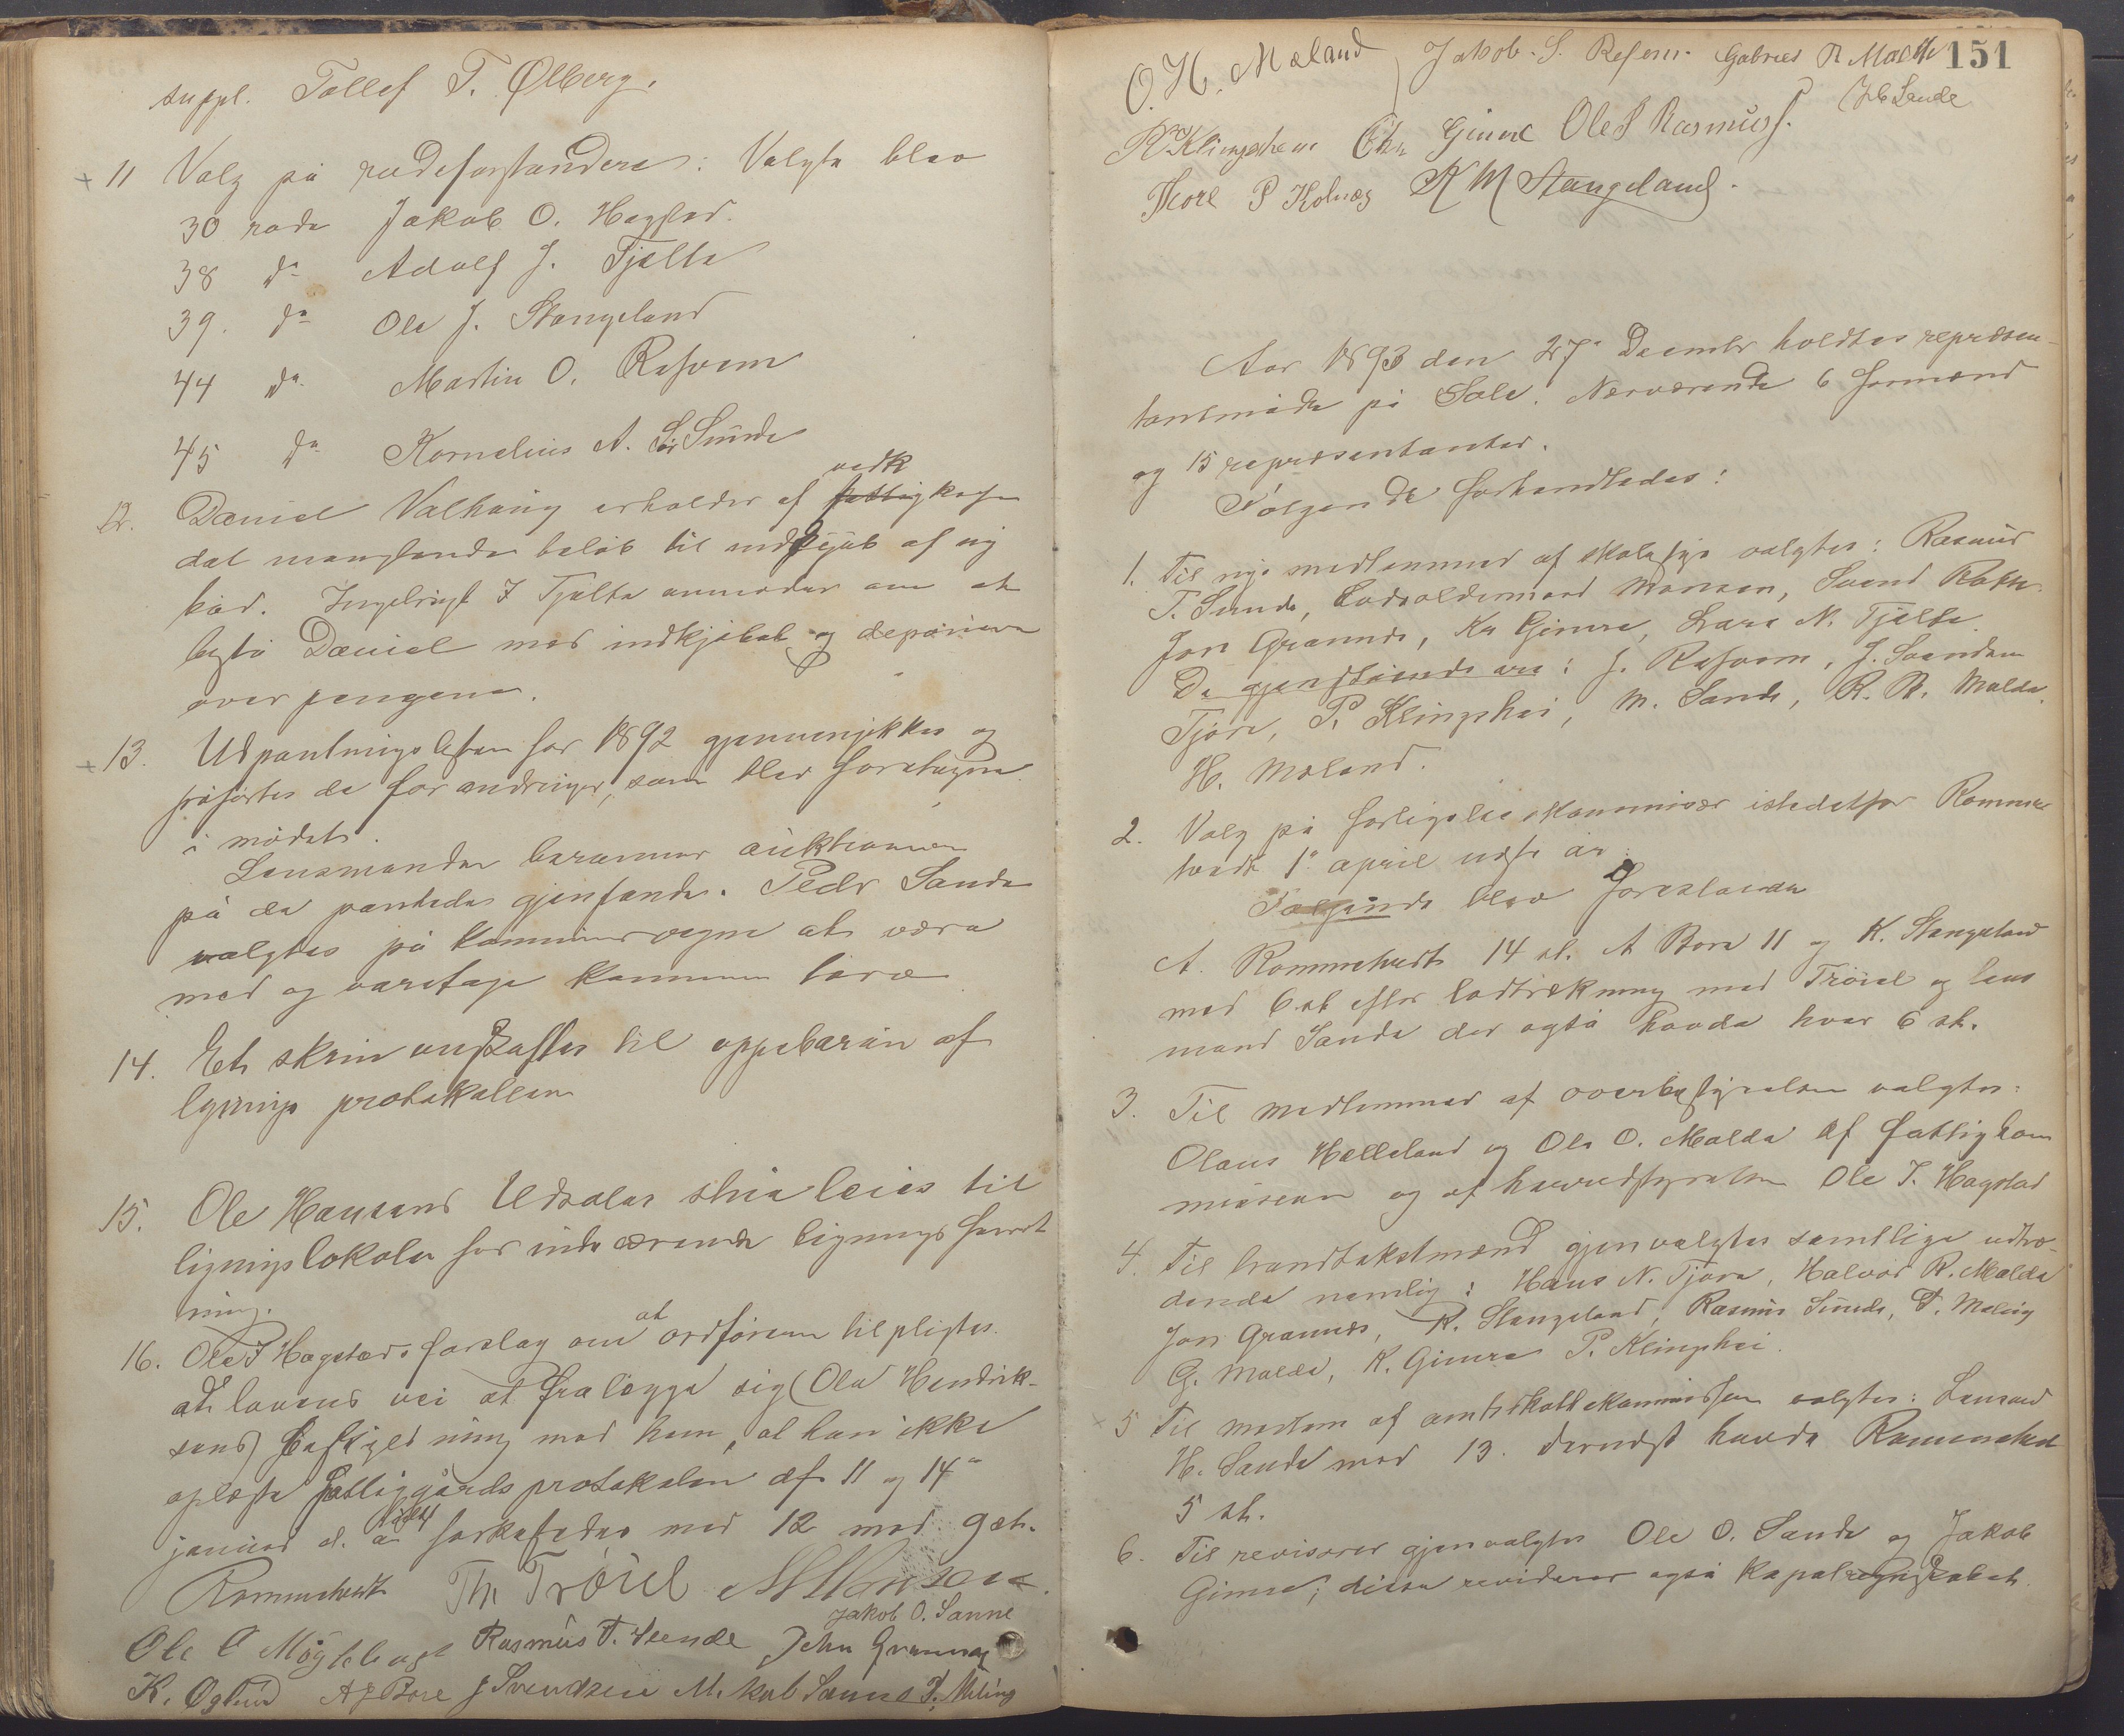 suppl. Tollef T. Ølberg.
+ 11 Valg på rodeforstandere: Valgte blev
30 rode Jakob O. Hagstad.
38 do Adolf J. Tjelte
39. do Ole J. Stangeland
44 do Martin O. Ræfsvem
45 do Kornelius A. Sør Sunde
12. Daniel Valhaug erholder af fattigkassen
vedk
det manglende beløb til indkjøb af ny
båd. Ingebrigt I Tjelte anmodes om at
bistå Daniel med indkjøbet og deponere
over pengene.
+ 13. Udpantningslisten for 1892 gjennemgikkes og
påførtes de forandringer, som blev foretagne
i mødet.
Lensmanden berammer auktionen
på de pantede gjenstande. Peder Sande
valgtes på kommunens vegne at være
med og varetage kommunens tarv
14. Et skrin anskaffes til oppebæring af
lignings protokollen
15. Ole Hansens Udsalgs stue leies til
ligningslokale for indeværende lignings forret
ning.
16. Ole J Hagstads forslag om at ordføreren tilpligtes
at lovens vei at fralægge sig (Ole Hendrik-
sens) beskyldning mod ham, at han ikke
oplæste fattiggårds protokolen af 11 og 14de
januar d. å. forkastedes med 12 mod 9 st.
Rommetvedt Th Trøiel M Monsen
Jakob O. Sømme
Ole O Møgleberget Rasmus T. Sunde John Grannes
K. Øglænd A J Bore J Svendsen M. Sømme P. Meling
151
O. H. Mæland Jakob S. Ræfsvem Gabriel R Malde
J b Sande
P. Klingsheim Chr Gimre Ole S Rasmuss.
Thore P Kolnæs K M Stangeland.
Aar 1893 den 27de Decembr holdtes repræsen-
tantmøde på Sole. Nærværende 6 formænd
og 15 repræsentanter.
Følgende forhandledes:
1. Til nye medlemmer af skolestyre valgtes: Rasmus
T. Sunde, Godseldermand Monsen, Svend Røkke.
Jon Grannes, Kr Gimre, Lars N. Tjelte.
De gjenstående ere: J. Ræfsvem, J. Svendsen
Tjøre, P. Klingshei, M. Sande, R. R. Malde
H. Mæland.
2. Valg på forligelseskommisær istedetfor Romme
tvedt 1ste april næste år.
Følgende blev foreslaaede
A. Rommetvedt 14 st. A Bore 11 og K. Stangeland
med 6 st efter lodtrekning med Trøiel og lens
mand Sande der også havde hver 6 st.
3. Til medlemmer af overbestyrelsen valgtes:
Olaus Helleland og Ole O. Malde af fattigkom
misionen og af herredsstyrelsen Ole J. Hagstad
4. Til brandtakstmænd gjenvalgtes samtlige udtræ-
dende nemlig: Hans N. Tjøra, Halvor R. Malde
Jon Grannes, K. Stangeland, Rasmus Sunde, P. Meling
G. Malde, K. Gimre P. Klingshei.
5 Til medlem af amtsskattekommissjon valgtes: Lensmand
H. Sande med 13. dernæst havde Rommetvedt
5 st.
6. Til revisorer gjenvalgtes Ole O. Sande og Jakob
Gimre; disse reviderer også kapelregnskabet.